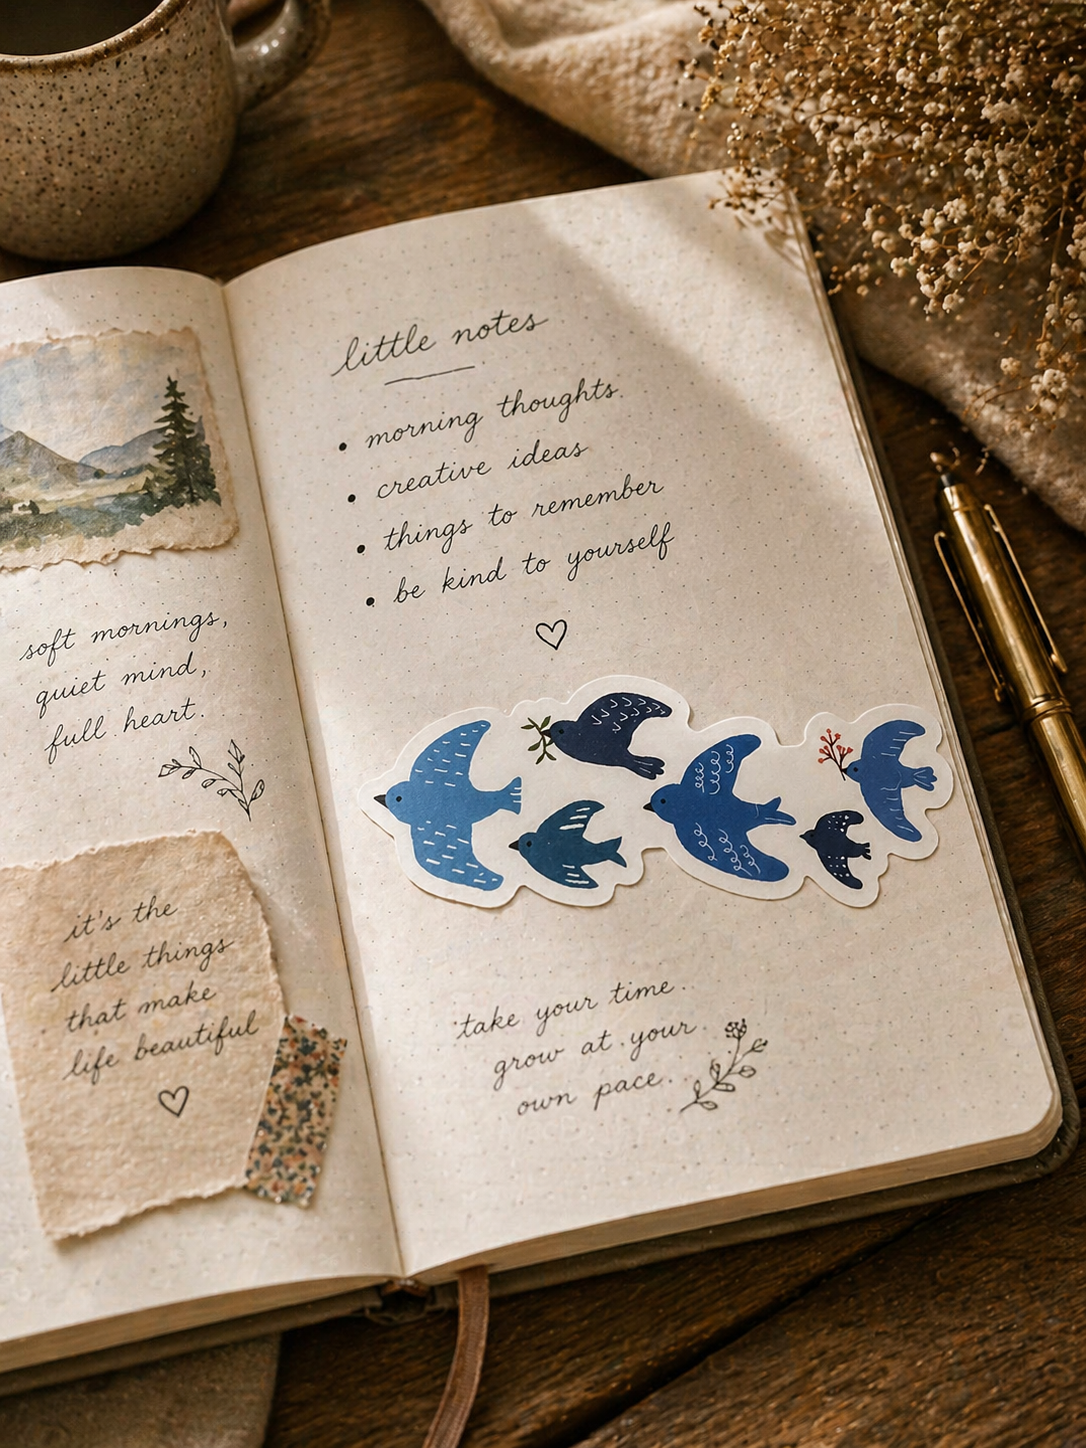 soft mornings,
quiet mind,
full heart.
it's the
little things
that make
life beautiful
little notes
• morning thoughts
• creative ideas
• things to remember
• be kind to yourself
take your time.
grow at your
own pace.